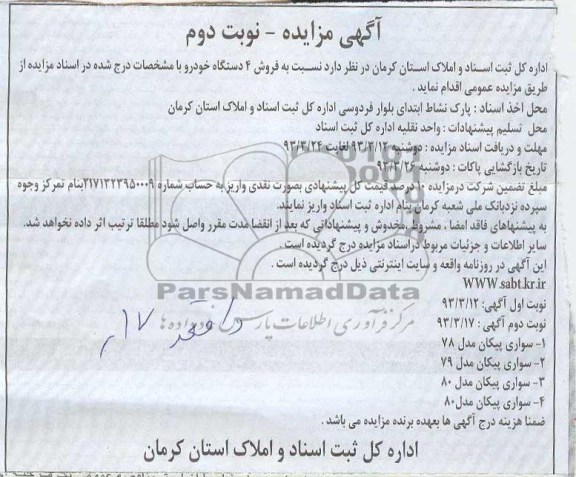 آگهی مزایده - نوبت دوم
اداره کل ثبت اسناد و املاک استان کرمان در نظر دارد نسبت به فروش ۴ دستگاه خودرو با مشخصات درج شده در اسناد مزایده از
طریق مزایده عمومی اقدام نماید .
محل اخذ اسناد : پارک نشاط ابتدای بلوار فردوسی اداره کل ثبت اسناد و املاک استان کرمان
محل تسلیم پیشنهادات : واحد نقلیه اداره کل ثبت اسناد
مهلت و دریافت اسناد مزایده : دوشنبه ۹۳/۳/۱۲ لغایت ۹۳/۳/۲۴
تاریخ بازگشایی پاکات : دوشنبه
مبلغ تضمین شرکت درمزایده ۱۰ درصد قیمت کل پیشنهادی بصورت نقدی واریز به حساب شماره ۲۱۷۱۳۲۳۹۵۰۰۰۹ بنام تمرکز وجوه
سپرده نزدبانک ملی شعبه کرمان بنام اداره ثبت اسناد واریز نمایند.
به پیشنهاهای فاقد امضا ، مشروط ،مخدوش و پیشنهاداتی که بعد از انقضا مدت مقرر واصل شود مطلقا ترتیب اثر داده نخواهد شد.
سایر اطلاعات و جزئیات مربوط دراسناد مزایده درج گردیده است .
این آگهی در روزنامه واقعه و سایت اینترنتی ذیل درج گردیده است .
WWW.sabt.kr.ir
ParsNamadData
نوبت اول آگهی: ۹۳/۳/۱۲
مرکز فرآوری اطلاعات پارس نماد داده ها
نوبت دوم آگهی : ۹۳/۳/۱۷
۱- سواری پیکان مدل ۷۸
۲- سواری پیکان مدل ۷۹
۳- سواری پیکان مدل ۸۰
۴- سواری پیکان مدل۸۰
ضمنا هزینه درج آگهی ها بعهده برنده مزایده می باشد .
اداره کل ثبت اسناد و املاک استان کرمان